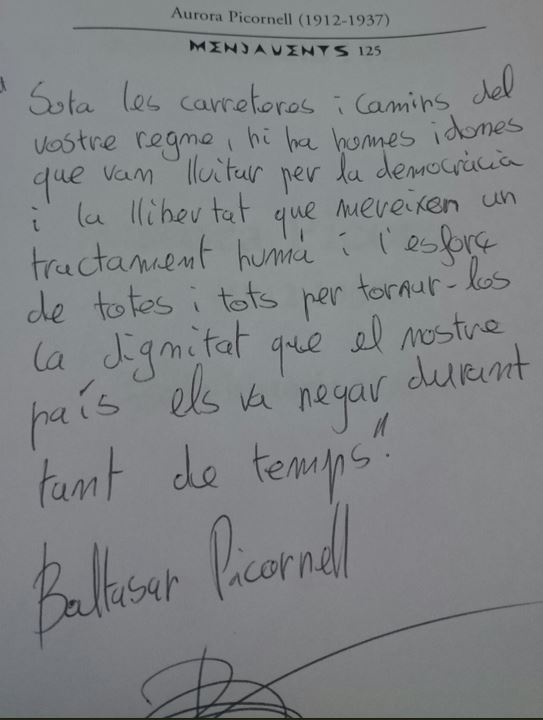 Aurora Picornell (1912-1937)
MENJAVENTS 125
Sota les carreteres i camins del
vostre regne, hi ha homes i dones
que van lluitar per la democràcia
i la llibertat que mereixen un
tractament humà i l'esforç
de totes i tots per tornar-los
la dignitat que el nostre
país els va negar durant
tant de temps".
Baltasar Picornell